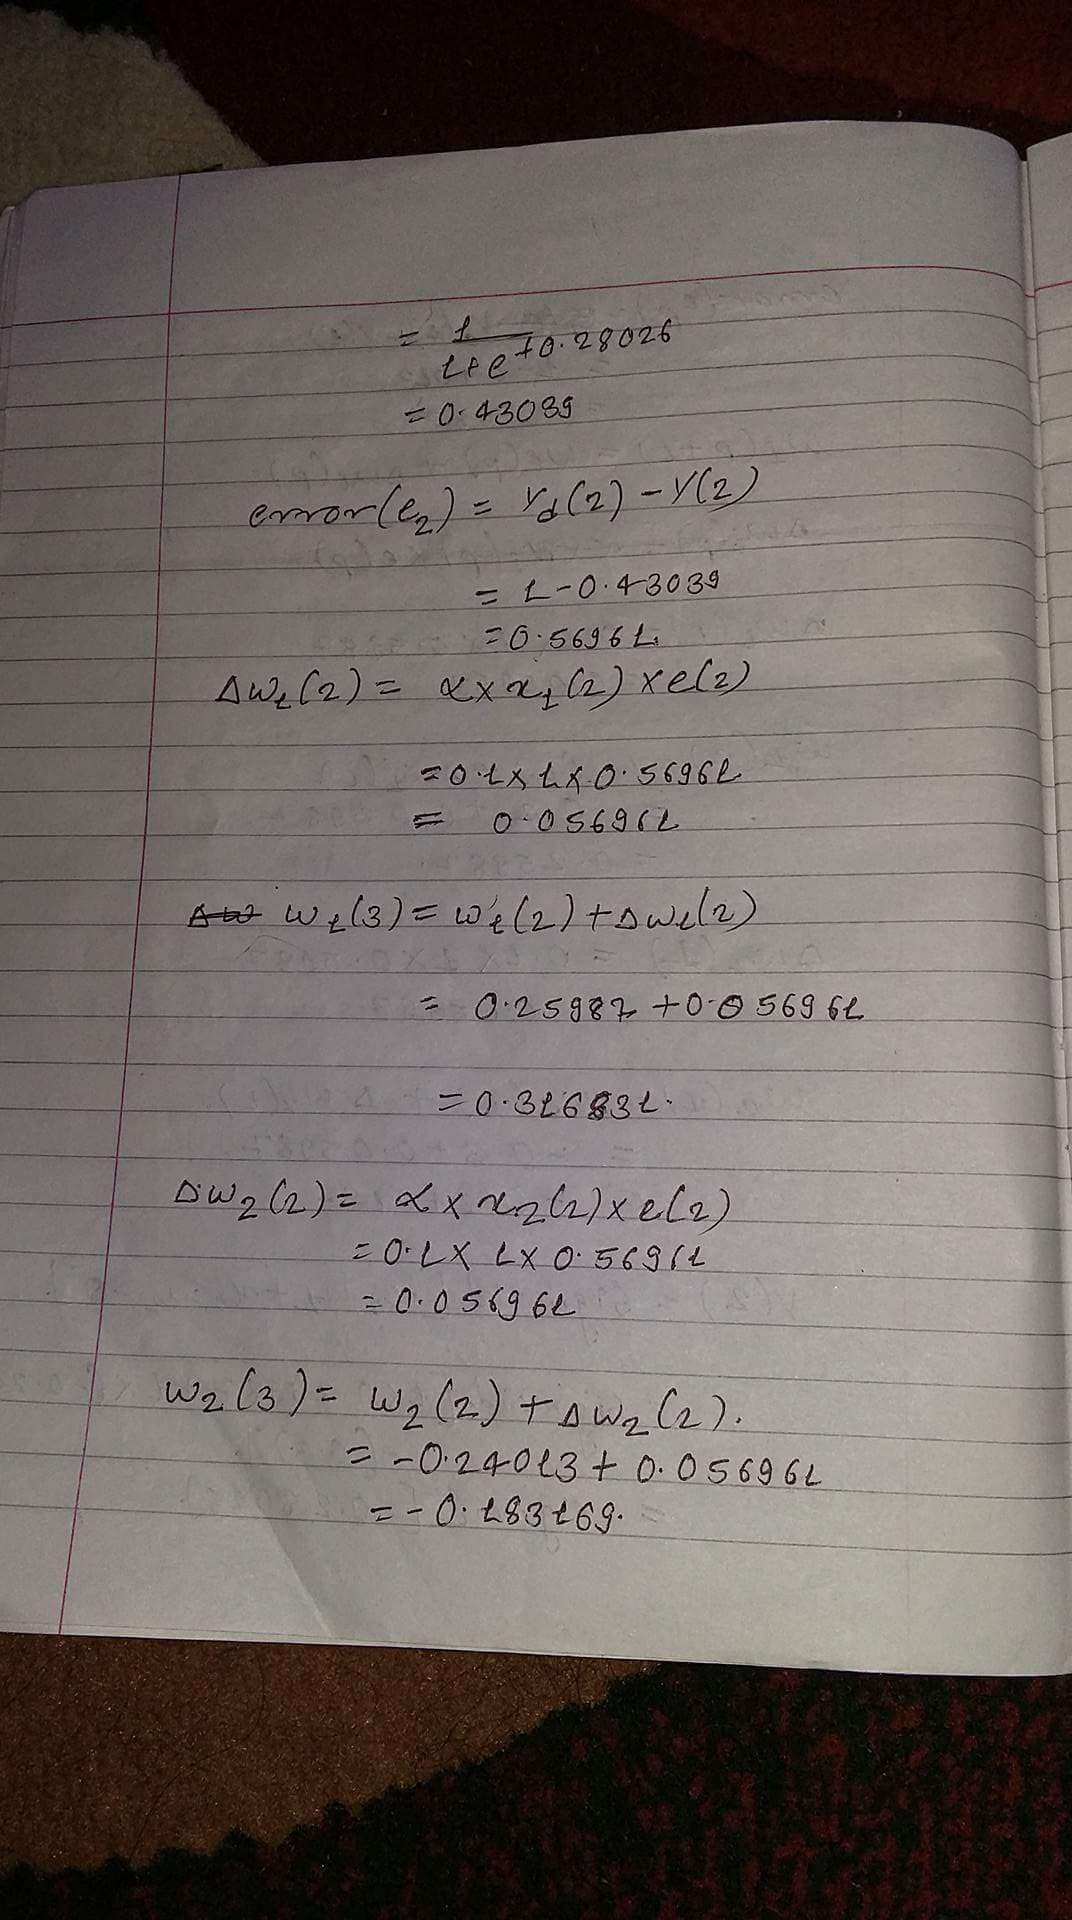 = 1
1+e^+0.28026
= 0.43039
error(e₂) = Yd(2) - Y(2)
= 1-0.43039
= 0.56961.
Δw₁(2) = α × x₁(2) × e(2)
= 0.1 × 1 × 0.56961
= 0.056961
w₁(3) = w₁(2) + Δw₁(2)
= 0.25987 + 0.056961
= 0.316831.
Δw₂(2) = α × x₂(2) × e(2)
= 0.1 × 1 × 0.56961
= 0.056961
w₂(3) = w₂(2) + Δw₂(2).
= -0.24013 + 0.056961
= -0.183169.